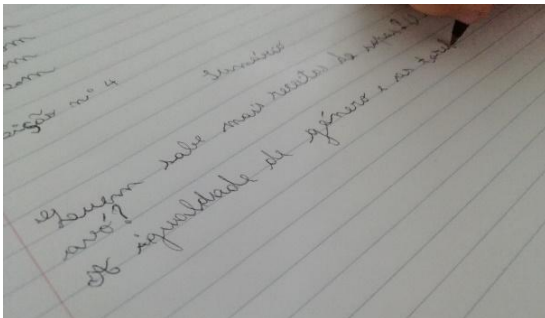 om
om
em
ição nº 4 Sumário
Quem sabe mais receitas de
avó?
A igualdade de género e as